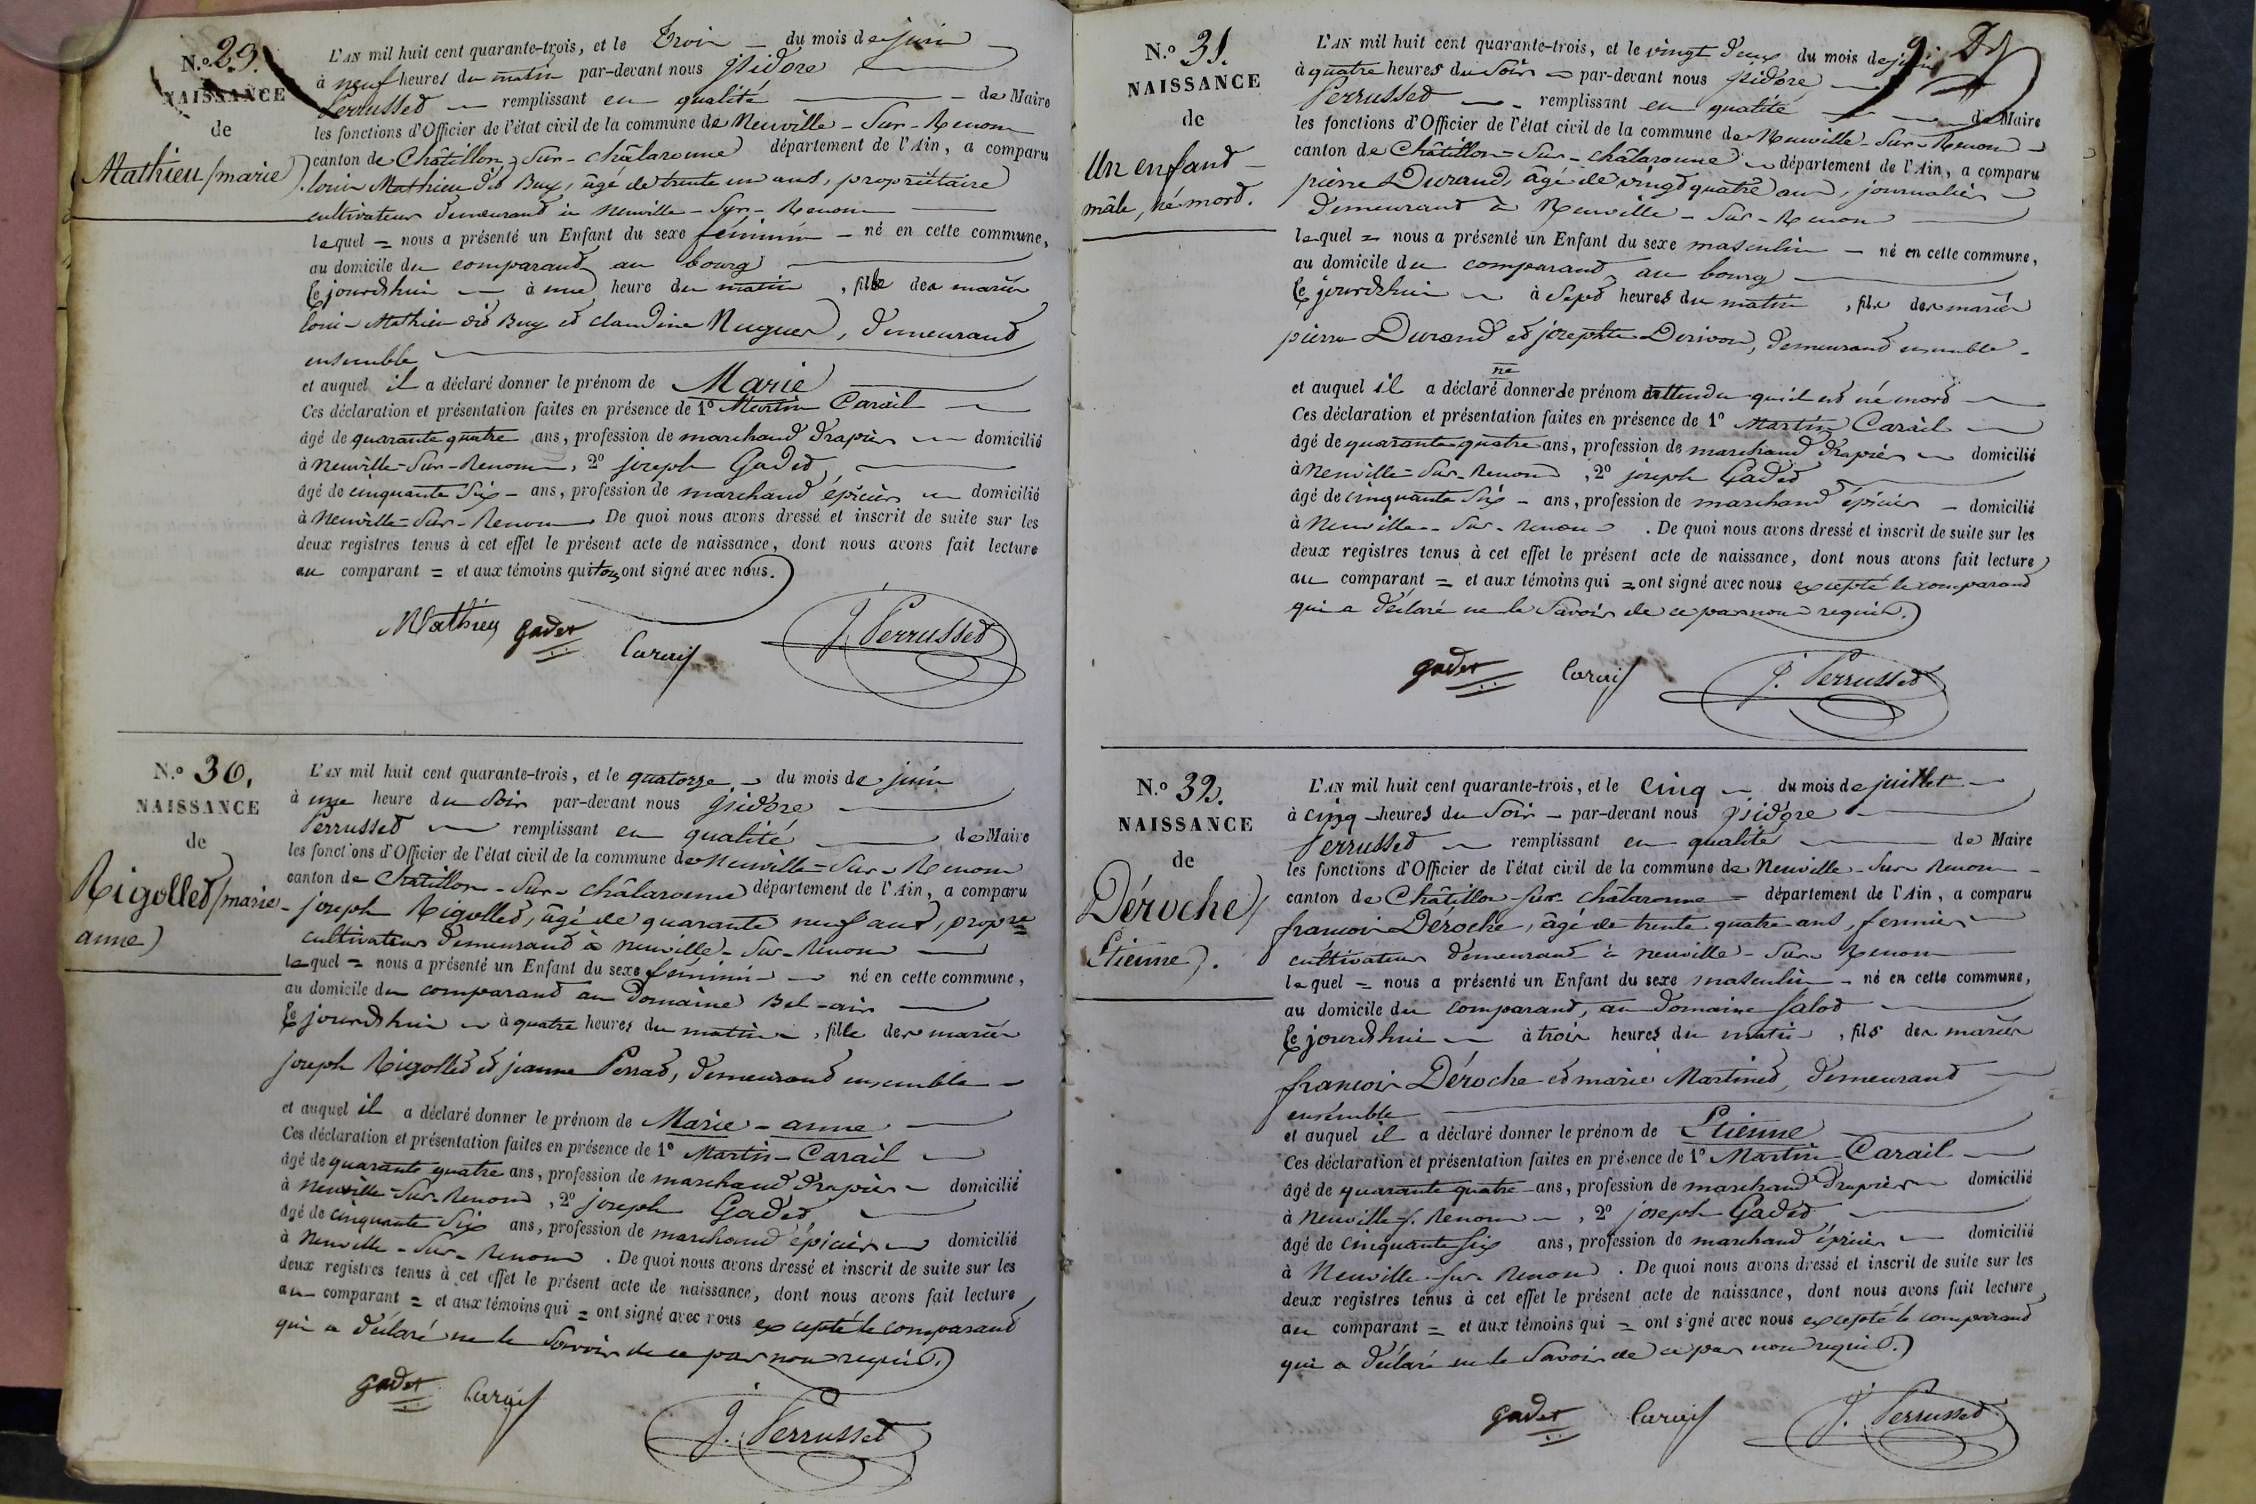 N.º 29.
NAISSANCE
de
Mathieu (marie).
L'AN mil huit cent quarante-trois, et le trois du mois de juin
à neuf heures du matin par-devant nous isidore
Perrusset remplissant en qualité de Maire
les fonctions d'Officier de l'état civil de la commune de Neuville-sur-Renom
canton de Châtillon-sur-châlaronne département de l'Ain, a comparu
louis Mathieu dit Buy, âgé de trente un ans, propriétaire
cultivateur demeurant à neuville-sur-Renom
lequel = nous a présenté un Enfant du sexe féminin né en cette commune,
au domicile du comparant au bourg
ce jourd'hui à une heure du matin, fille des mariés
louis Mathieu dit Buy et claudine Nuguer, demeurant
ensemble
et auquel il a déclaré donner le prénom de Marie
Ces déclaration et présentation faites en présence de 1º Martin Carail
âgé de quarante quatre ans, profession de marchand drapier domicilié
à neuville-sur-Renom, 2º joseph Gadet
âgé de cinquante six ans, profession de marchand épicier domicilié
à neuville-sur-Renom. De quoi nous avons dressé et inscrit de suite sur les
deux registres tenus à cet effet le présent acte de naissance, dont nous avons fait lecture
au comparant = et aux témoins qui tous ont signé avec nous.
Mathieu gadet Carail J. Perrusset
N.º 30.
NAISSANCE
de
Rigollet (marie-
anne)
L'AN mil huit cent quarante-trois, et le quatorze du mois de juin
à une heure du soir par-devant nous isidore
Perrusset remplissant en qualité de Maire
les fonctions d'Officier de l'état civil de la commune de Neuville-sur-Renom
canton de Châtillon-sur-châlaronne département de l'Ain, a comparu
joseph Rigollet, âgé de quarante neuf ans, propre
cultivateur demeurant à neuville-sur-Renom
lequel = nous a présenté un Enfant du sexe féminin né en cette commune,
au domicile du comparant au Domaine Bel-air
ce jourd'hui à quatre heures du matin, fille des mariés
joseph Rigollet et jeanne Perrad, demeurant ensemble
et auquel il a déclaré donner le prénom de Marie-anne
Ces déclaration et présentation faites en présence de 1º Martin Carail
âgé de quarante quatre ans, profession de marchand drapier domicilié
à neuville-sur-Renom, 2º joseph Gadet
âgé de cinquante six ans, profession de marchand épicier domicilié
à neuville-sur-Renom. De quoi nous avons dressé et inscrit de suite sur les
deux registres tenus à cet effet le présent acte de naissance, dont nous avons fait lecture
au comparant = et aux témoins qui = ont signé avec nous excepté le comparant
qui a déclaré ne le savoir de ce par nous requis.
gadet Carail J. Perrusset
9.
N.º 31.
NAISSANCE
de
Un enfant
mâle, né mort.
L'AN mil huit cent quarante-trois, et le vingt deux du mois de juin
à quatre heures du soir par-devant nous isidore
Perrusset remplissant en qualité de Maire
les fonctions d'Officier de l'état civil de la commune de Neuville-sur-Renom
canton de Châtillon-sur-châlaronne département de l'Ain, a comparu
pierre Durand, âgé de vingt quatre ans, journalier
demeurant à Neuville-sur-Renom
lequel = nous a présenté un Enfant du sexe masculin né en cette commune,
au domicile du comparant au bourg
ce jourd'hui à sept heures du matin, fils des mariés
pierre Durand et josephte Derivon, demeurant ensemble
ne
et auquel il a déclaré donner de prénom attendu qu'il est né mort
Ces déclaration et présentation faites en présence de 1º Martin Carail
âgé de quarante quatre ans, profession de marchand drapier domicilié
à neuville-sur-Renom, 2º joseph Gadet
âgé de cinquante six ans, profession de marchand épicier domicilié
à Neuville-sur-Renom. De quoi nous avons dressé et inscrit de suite sur les
deux registres tenus à cet effet le présent acte de naissance, dont nous avons fait lecture
au comparant = et aux témoins qui = ont signé avec nous excepté le comparant
qui a déclaré ne le savoir de ce par nous requis.
gadet Carail J. Perrusset
N.º 32.
NAISSANCE
de
Déroche (
Etienne).
L'AN mil huit cent quarante-trois, et le cinq du mois de juillet
à cinq heures du soir par-devant nous isidore
Perrusset remplissant en qualité de Maire
les fonctions d'Officier de l'état civil de la commune de Neuville-sur-Renom
canton de Châtillon-sur-châlaronne département de l'Ain, a comparu
francois Déroche, âgé de trente quatre ans, fermier
cultivateur demeurant à neuville-sur-Renom
lequel = nous a présenté un Enfant du sexe masculin né en cette commune,
au domicile du comparant, au Domaine salod
ce jourd'hui à trois heures du matin, fils des mariés
francois Déroche et marie Martinet, demeurant
ensemble
et auquel il a déclaré donner le prénom de Etienne
Ces déclaration et présentation faites en présence de 1º Martin Carail
âgé de quarante quatre ans, profession de marchand drapier domicilié
à neuville-s.-Renom, 2º joseph Gadet
âgé de cinquante six ans, profession de marchand épicier domicilié
à Neuville-sur-Renom. De quoi nous avons dressé et inscrit de suite sur les
deux registres tenus à cet effet le présent acte de naissance, dont nous avons fait lecture
au comparant = et aux témoins qui = ont signé avec nous excepté le comparant
qui a déclaré ne le savoir de ce par nous requis.
gadet Carail J. Perrusset